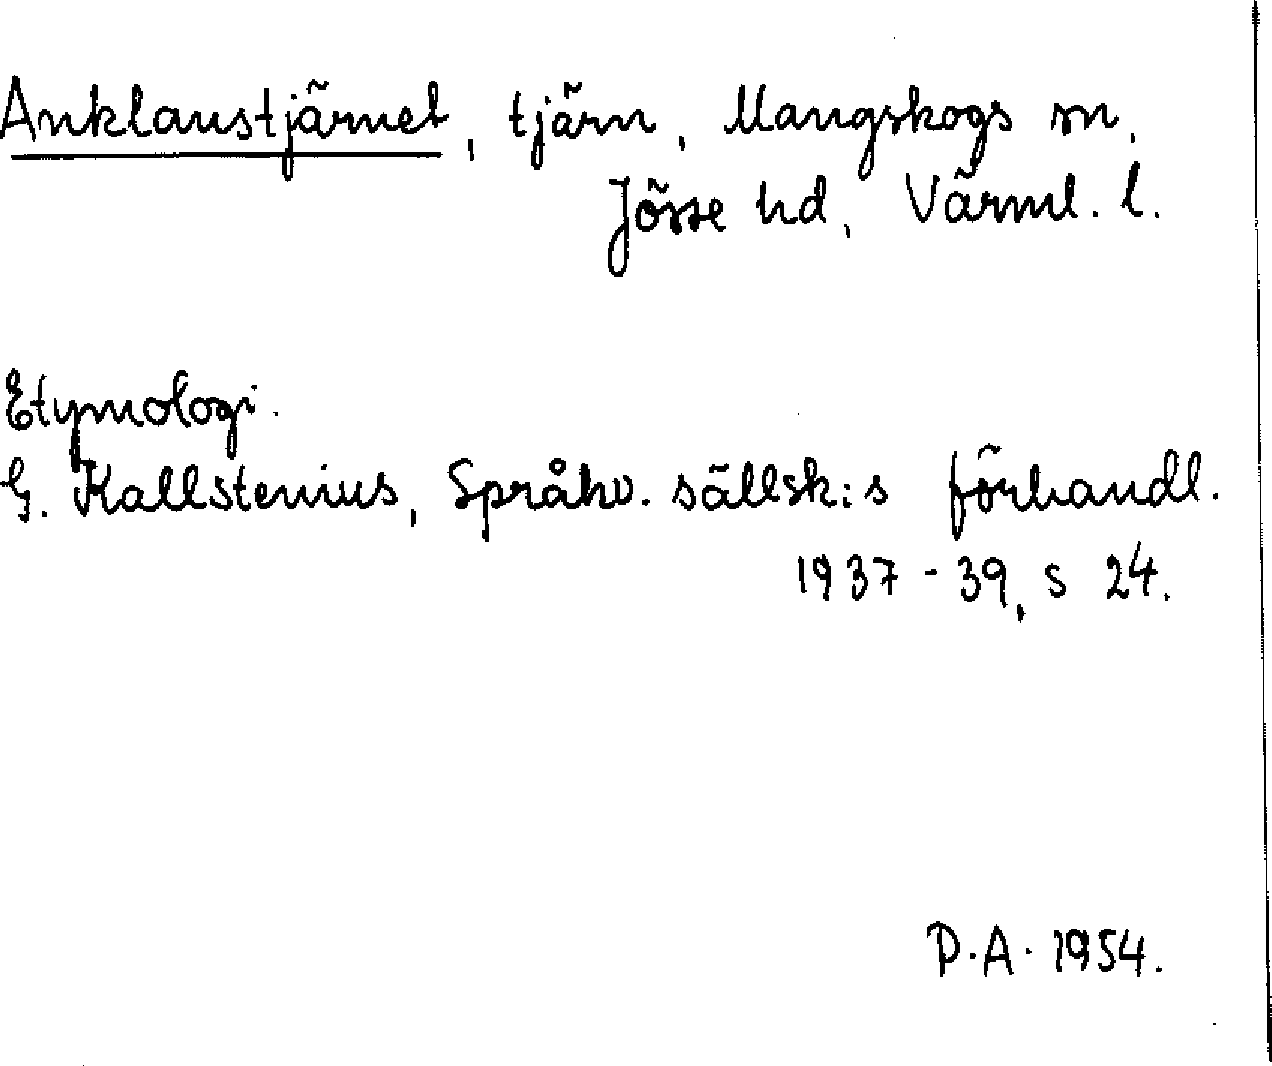 Anklaustjärnet, tjärn, Mangskogs sn,
Jösse hd, Värml. l.
Etymologi.
G. Kallstenius, Språkv. sällsk:s förhandl.
1937-39, s 24.
P.A. 1954.